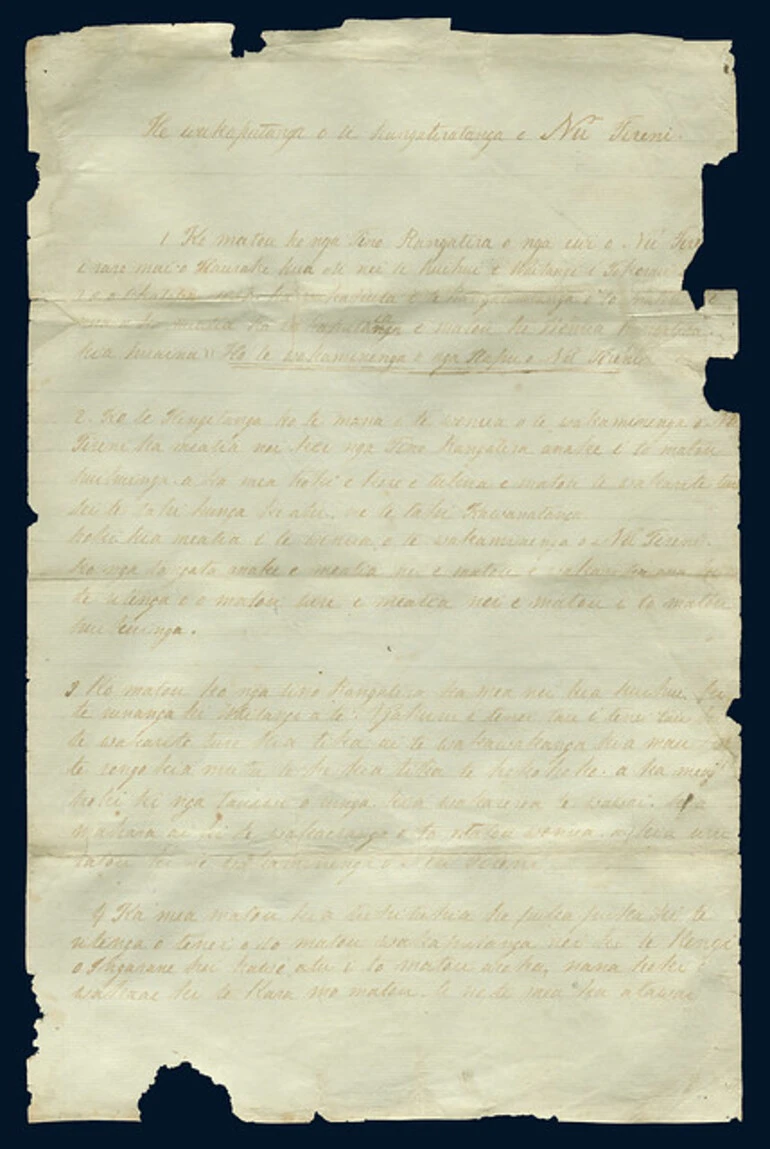 He wakaputanga o te Rangatiratanga o Nu Tireni.
1 Ko matou ko nga Tino Rangatira o nga iwi o Nu Tire
i raro mai o Haurake kua oti nei te huihui i Waitangi i Tokerau
ka wakaputa i te Rangatiratanga o to matou
ka meatia ka wakaputaia e matou he Wenua Rangatira.
kia huaina "Ko te wakaminenga o nga Hapu o Nu Tireni
2. Ko te Kingitanga ko te mana i te wenua o te wakaminenga o Nu
Tireni ka meatia nei kei nga Tino Rangatira anake i to matou
huihuinga. a ka mea hoki e kore e tukua e matou te wakarite ture
ki te tahi hunga ke atu, me te tahi Kawanatanga
hoki kia meatia i te wenua o te wakaminenga o Nu Tireni.
ko nga tangata anake e meatia nei e matou e wakarite ana ki
te ritenga o o matou ture e meatia nei e matou i to matou
huihuinga.
3 Ko matou ko nga tino Rangatira ka mea nei kia huihui ki
te runanga ki Waitangi a te Ngahuru i tenei tau i tenei tau ki
te wakarite ture kia tika ai te wakawakanga kia mau
te rongo kia mutu te he kia tika te hokohoko. a ka mea
hoki ki nga tauiwi o runga. kia wakarerea te wawai. kia
mahara ai ki te wakaoranga o to matou wenua. a kia uru
ratou ki te wakaminenga o Nu Tireni.
4 Ka mea matou kia tuhituhia he pukapuka ki te
ritenga o tenei o to matou wakaputanga nei ki te Kingi
o Ingarane hei kawe atu i to matou aroha. nana hoki i
wakaae ki te Kara mo matou. a no te mea ka atawai